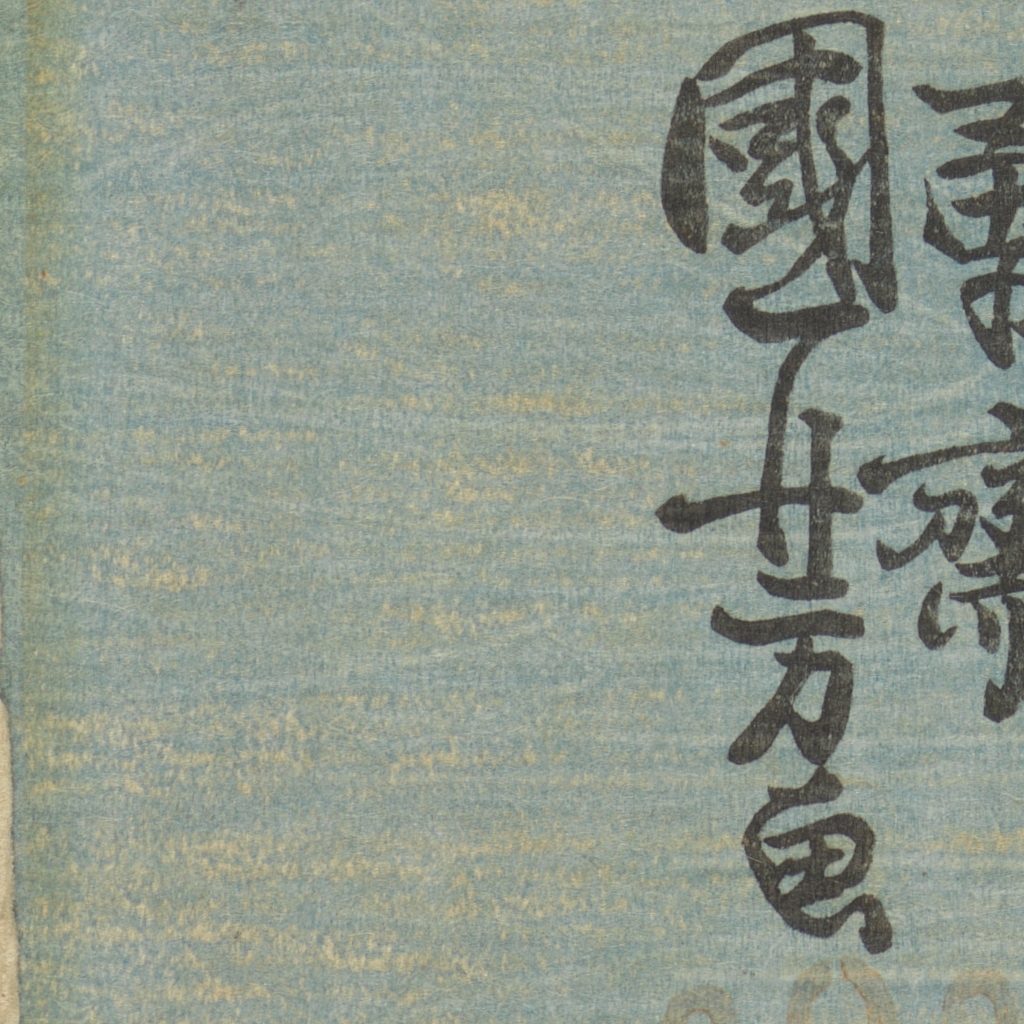 勇齋
國芳画